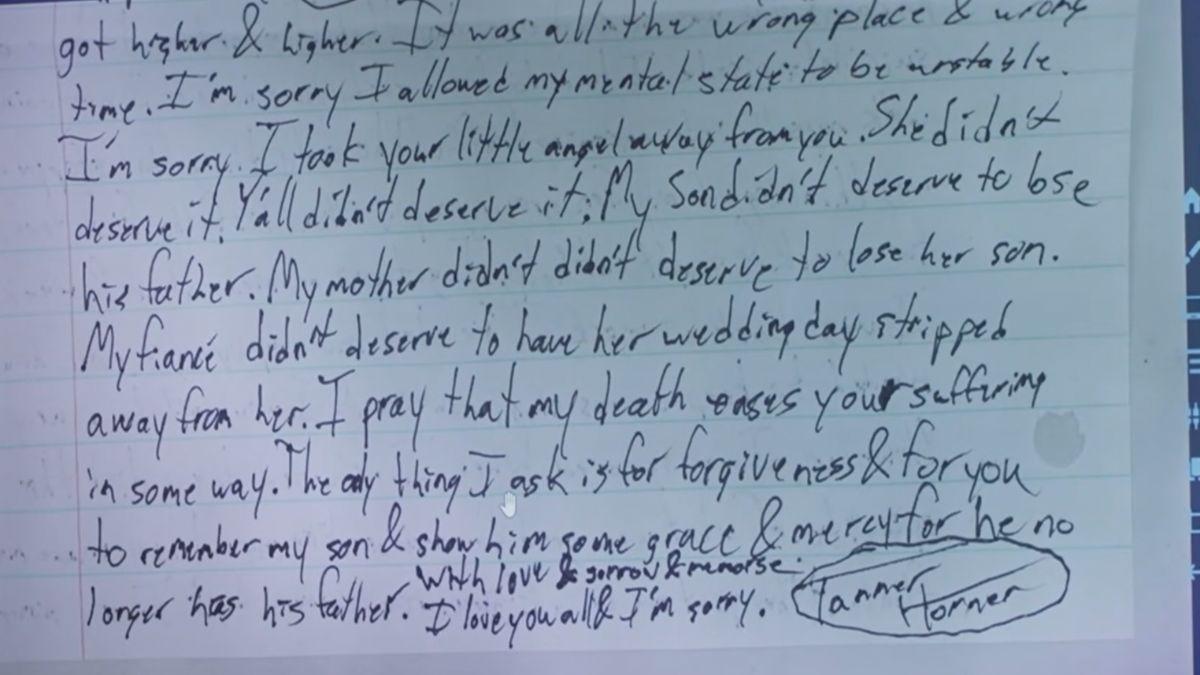 got higher & higher. It was all the wrong place & wrong
time. I'm sorry I allowed my mental state to be unstable.
I'm sorry I took your little angel away from you. She didn't
deserve it. Y'all didn't deserve it. My Son didn't deserve to lose
his father. My mother didn't didn't deserve to lose her son.
My fiancé didn't deserve to have her wedding day stripped
away from her. I pray that my death eases your suffering
in some way. The only thing I ask is for forgiveness & for you
to remember my son & show him some grace & mercy for he no
with love & sorrow & remorse.
longer has his father. I love you all & I'm sorry. Tanner Horner